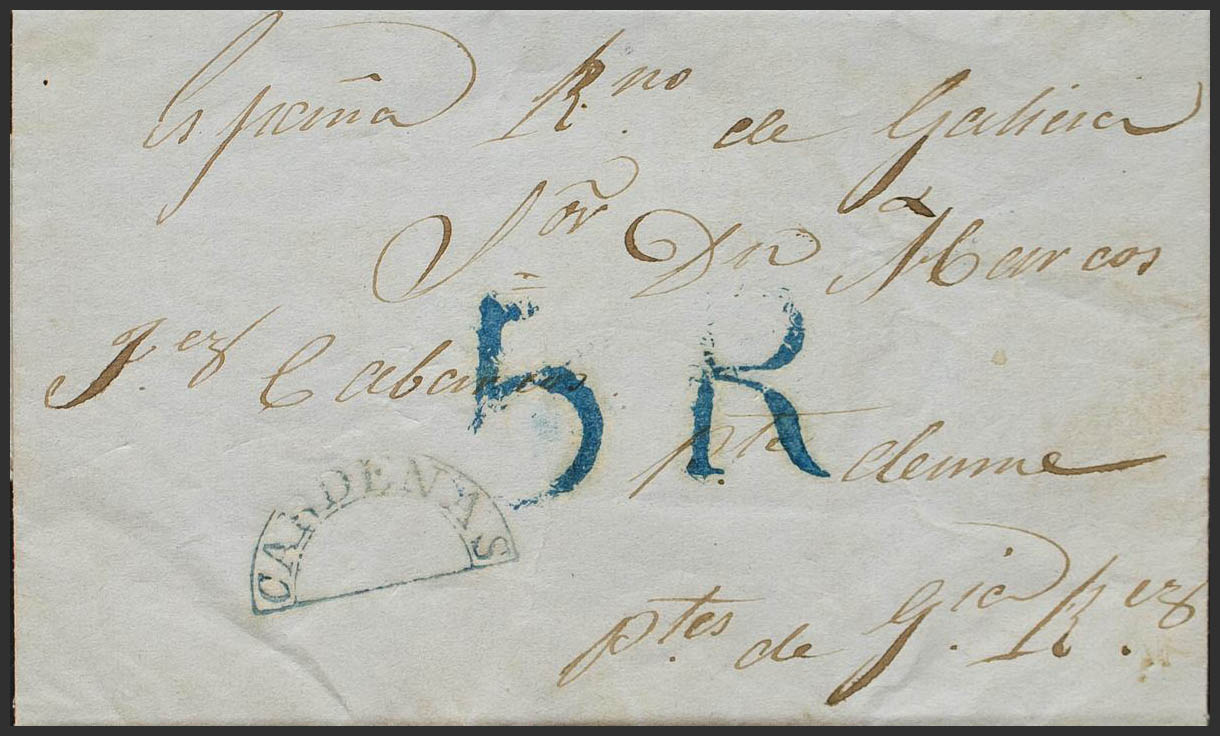 España R.no de Galicia
Sor Dn Marcos
F.ez Cabanas
5 R
pte. deume
CARDENAS
ptes. de G.ia R.ez